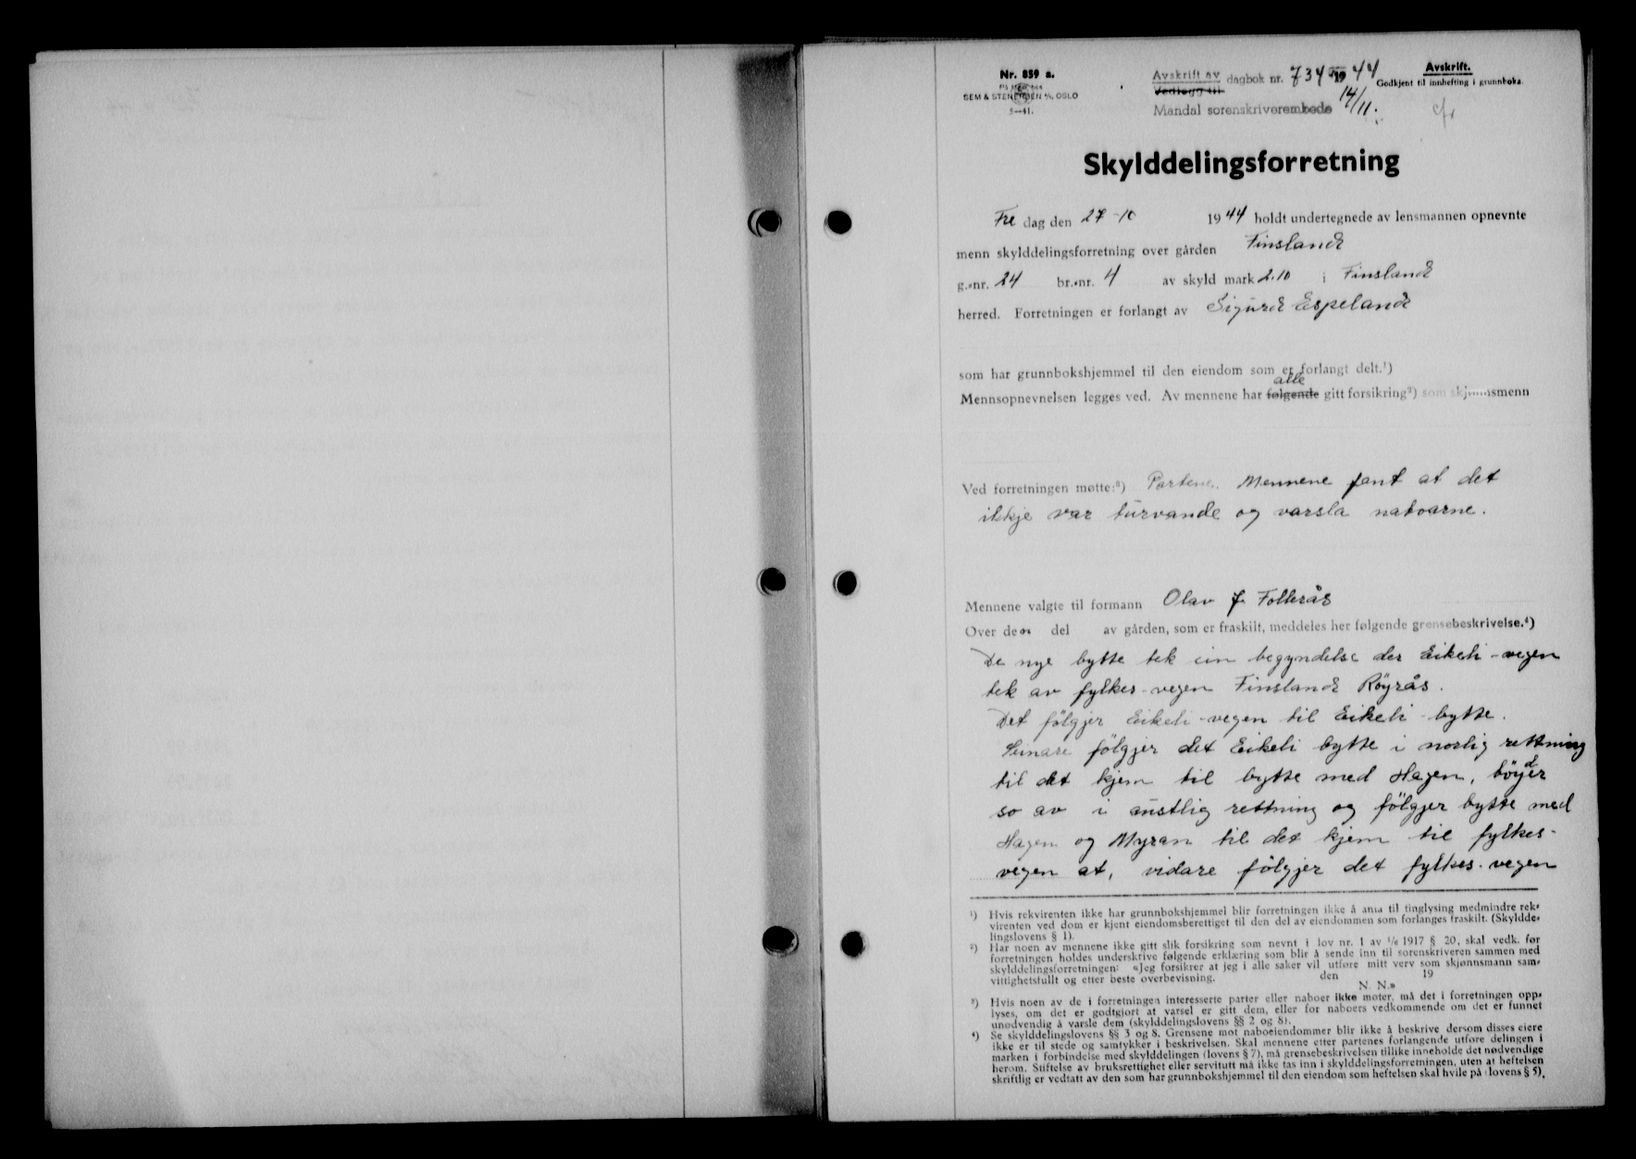 Nr. 859 a.
SEM & STENERSEN A/S, OSLO
5—41.
Avskrift av dagbok nr. 734 1944
Vedlegg til
Mandal sorenskriverembede 14/11.
Avskrift.
Godkjent til innhefting i grunnboka.
Skylddelingsforretning
Fre dag den 27-10 1944 holdt undertegnede av lensmannen opnevnte
menn skylddelingsforretning over gården Finsland
g.-nr. 24 br.-nr. 4 av skyld mark 2.10 i Finsland
herred. Forretningen er forlangt av Sigurd Espeland
som har grunnbokshjemmel til den eiendom som er forlangt delt.¹)
alle
Mennsopnevnelsen legges ved. Av mennene har følgende gitt forsikring²) som skjønnsmenn
Ved forretningen møtte:³) Partene. Mennene fant at det
ikkje var turvande og varsla naboarne.
Mennene valgte til formann Olav J. Follerås
Over den del av gården, som er fraskilt, meddeles her følgende grensebeskrivelse.⁴)
De nye bytte tek sin begyndelse der Eikeli-vegen
tek av fylkes-vegen Finsland Röyrås.
Det fölgjer Eikeli-vegen til Eikeli-bytte.
Seinare fölgjer det Eikeli bytte i norlig rettning
til det kjem til bytte med Hagen, böyer
so av i austlig rettning og fölgjer bytte med
Hagen og Myran til det kjem til fylkes-
vegen at, vidare fölgjer det fylkes-vegen
¹) Hvis rekvirenten ikke har grunnbokshjemmel blir forretningen ikke å anta til tinglysing medmindre rek-
virenten ved dom er kjent eiendomsberettiget til den del av eiendommen som forlanges fraskilt. (Skyldde-
lingslovens § 1).
²) Har noen av mennene ikke gitt slik forsikring som nevnt i lov nr. 1 av 1/6 1917 § 20, skal vedk. før
forretningen holdes underskrive følgende erklæring som blir å sende inn til sorenskriveren sammen med
skylddelingsforretningen: «Jeg forsikrer at jeg i alle saker vil utføre mitt verv som skjønnsmann sam-
vittighetsfullt og etter beste overbevisning. den 19
N. N.»
³) Hvis noen av de i forretningen interesserte parter eller naboer ikke møter, må det i forretningen opp-
lyses, om det er godtgjort at varsel er gitt dem, eller for naboers vedkommende om det er funnet
unødvendig å varsle dem (skylddelingslovens §§ 2 og 8).
⁴) Se skylddelingslovens §§ 3 og 8. Grensene mot naboeiendommer blir ikke å beskrive dersom disses eiere
ikke er til stede og samtykker i beskrivelsen. Skal mennene etter partenes forlangende utføre delingen i
marken i forbindelse med skylddelingen (lovens § 7), må grensebeskrivelsen tillike inneholde det nødvendige
herom. Stiftelse av bruksrettighet eller servitutt må ikke tas inn i skylddelingsforretningen, uten at heftelsen
skriftlig er vedtatt av den som har grunnbokshjemmel til den eiendom som heftelsen skal hvile på (lovens § 5).